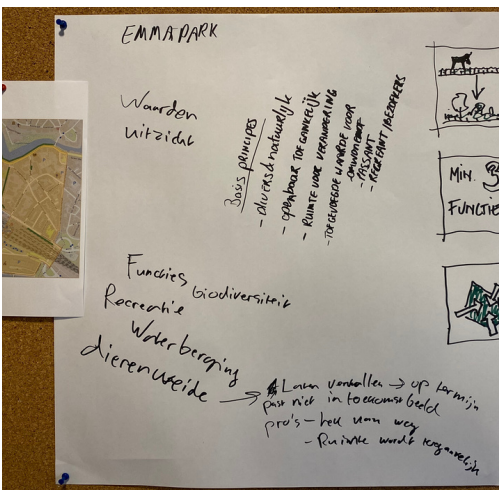 EMMAPARK
Waarden
uitzicht
Basis principes
- divers & natuurlijk
- openbaar toegankelijk
- ruimte voor verandering
- toegevoegde waarde voor
- omwonend
- passant
- recreant/bezoekers
Functies
biodiversiteit
Recreatie
Waterberging
dierenweide
Laten vervallen → op termijn
past niet in toekomstbeeld
pro's - hek van weg
- Ruimte wordt toegankelijk
MIN.
FUNCTIE